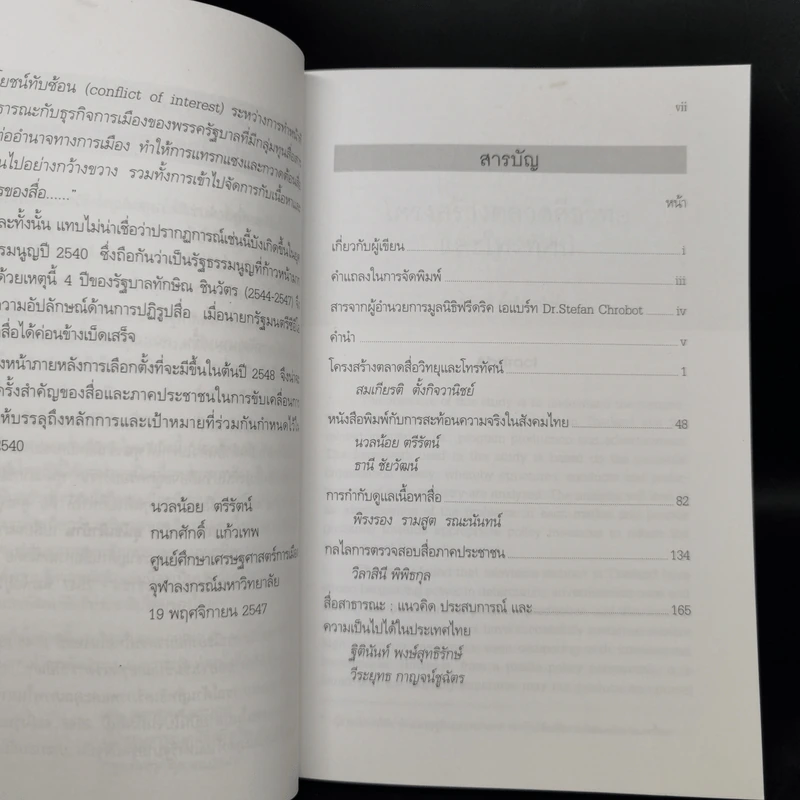 โยชน์ทับซ้อน (conflict of interest) ระหว่างการทำหน้าที่
ธารณะกับธุรกิจการเมืองของพรรครัฐบาลที่มีกลุ่มทุนสื่อสาร
ต่ออำนาจทางการเมือง ทำให้การแทรกแซงและกวาดต้อนสื่อ
นไปอย่างกว้างขวาง รวมทั้งการเข้าไปจัดการกับเนื้อหาและ
รของสื่อ......"
ละทั้งนั้น แทบไม่น่าเชื่อว่าปรากฏการณ์เช่นนี้บังเกิดขึ้นในยุค
รรมนูญปี 2540 ซึ่งถือกันว่าเป็นรัฐธรรมนูญที่ก้าวหน้ามาก
ด้วยเหตุนี้ 4 ปีของรัฐบาลทักษิณ ชินวัตร (2544-2547) จึง
ความอัปลักษณ์ด้านการปฏิรูปสื่อ เมื่อนายกรัฐมนตรี
สื่อได้ค่อนข้างเบ็ดเสร็จ
งหน้าภายหลังการเลือกตั้งที่จะมีขึ้นในต้นปี 2548 จึงน่าจะ
ครั้งสำคัญของสื่อและภาคประชาชนในการขับเคลื่อนการ
ห้บรรลุถึงหลักการและเป้าหมายที่ร่วมกันกำหนดไว้ใน
2540
นวลน้อย ตรีรัตน์
กนกศักดิ์ แก้วเทพ
ศูนย์ศึกษาเศรษฐศาสตร์การเมือง
จุฬาลงกรณ์มหาวิทยาลัย
19 พฤศจิกายน 2547
vii
สารบัญ
หน้า
เกี่ยวกับผู้เขียน i
คำแถลงในการจัดพิมพ์ iii
สารจากผู้อำนวยการมูลนิธิฟรีดริค เอแบร์ท Dr.Stefan Chrobot iv
คำนำ v
โครงสร้างตลาดสื่อวิทยุและโทรทัศน์ 1
สมเกียรติ ตั้งกิจวานิชย์
หนังสือพิมพ์กับการสะท้อนความจริงในสังคมไทย 48
นวลน้อย ตรีรัตน์
ธานี ชัยวัฒน์
การกำกับดูแลเนื้อหาสื่อ 82
พิรงรอง รามสูต รณะนันทน์
กลไลการตรวจสอบสื่อภาคประชาชน 134
วิลาสินี พิพิธกุล
สื่อสาธารณะ : แนวคิด ประสบการณ์ และ 165
ความเป็นไปได้ในประเทศไทย
ฐิตินันท์ พงษ์สุทธิรักษ์
วีระยุทธ กาญจน์ชูฉัตร